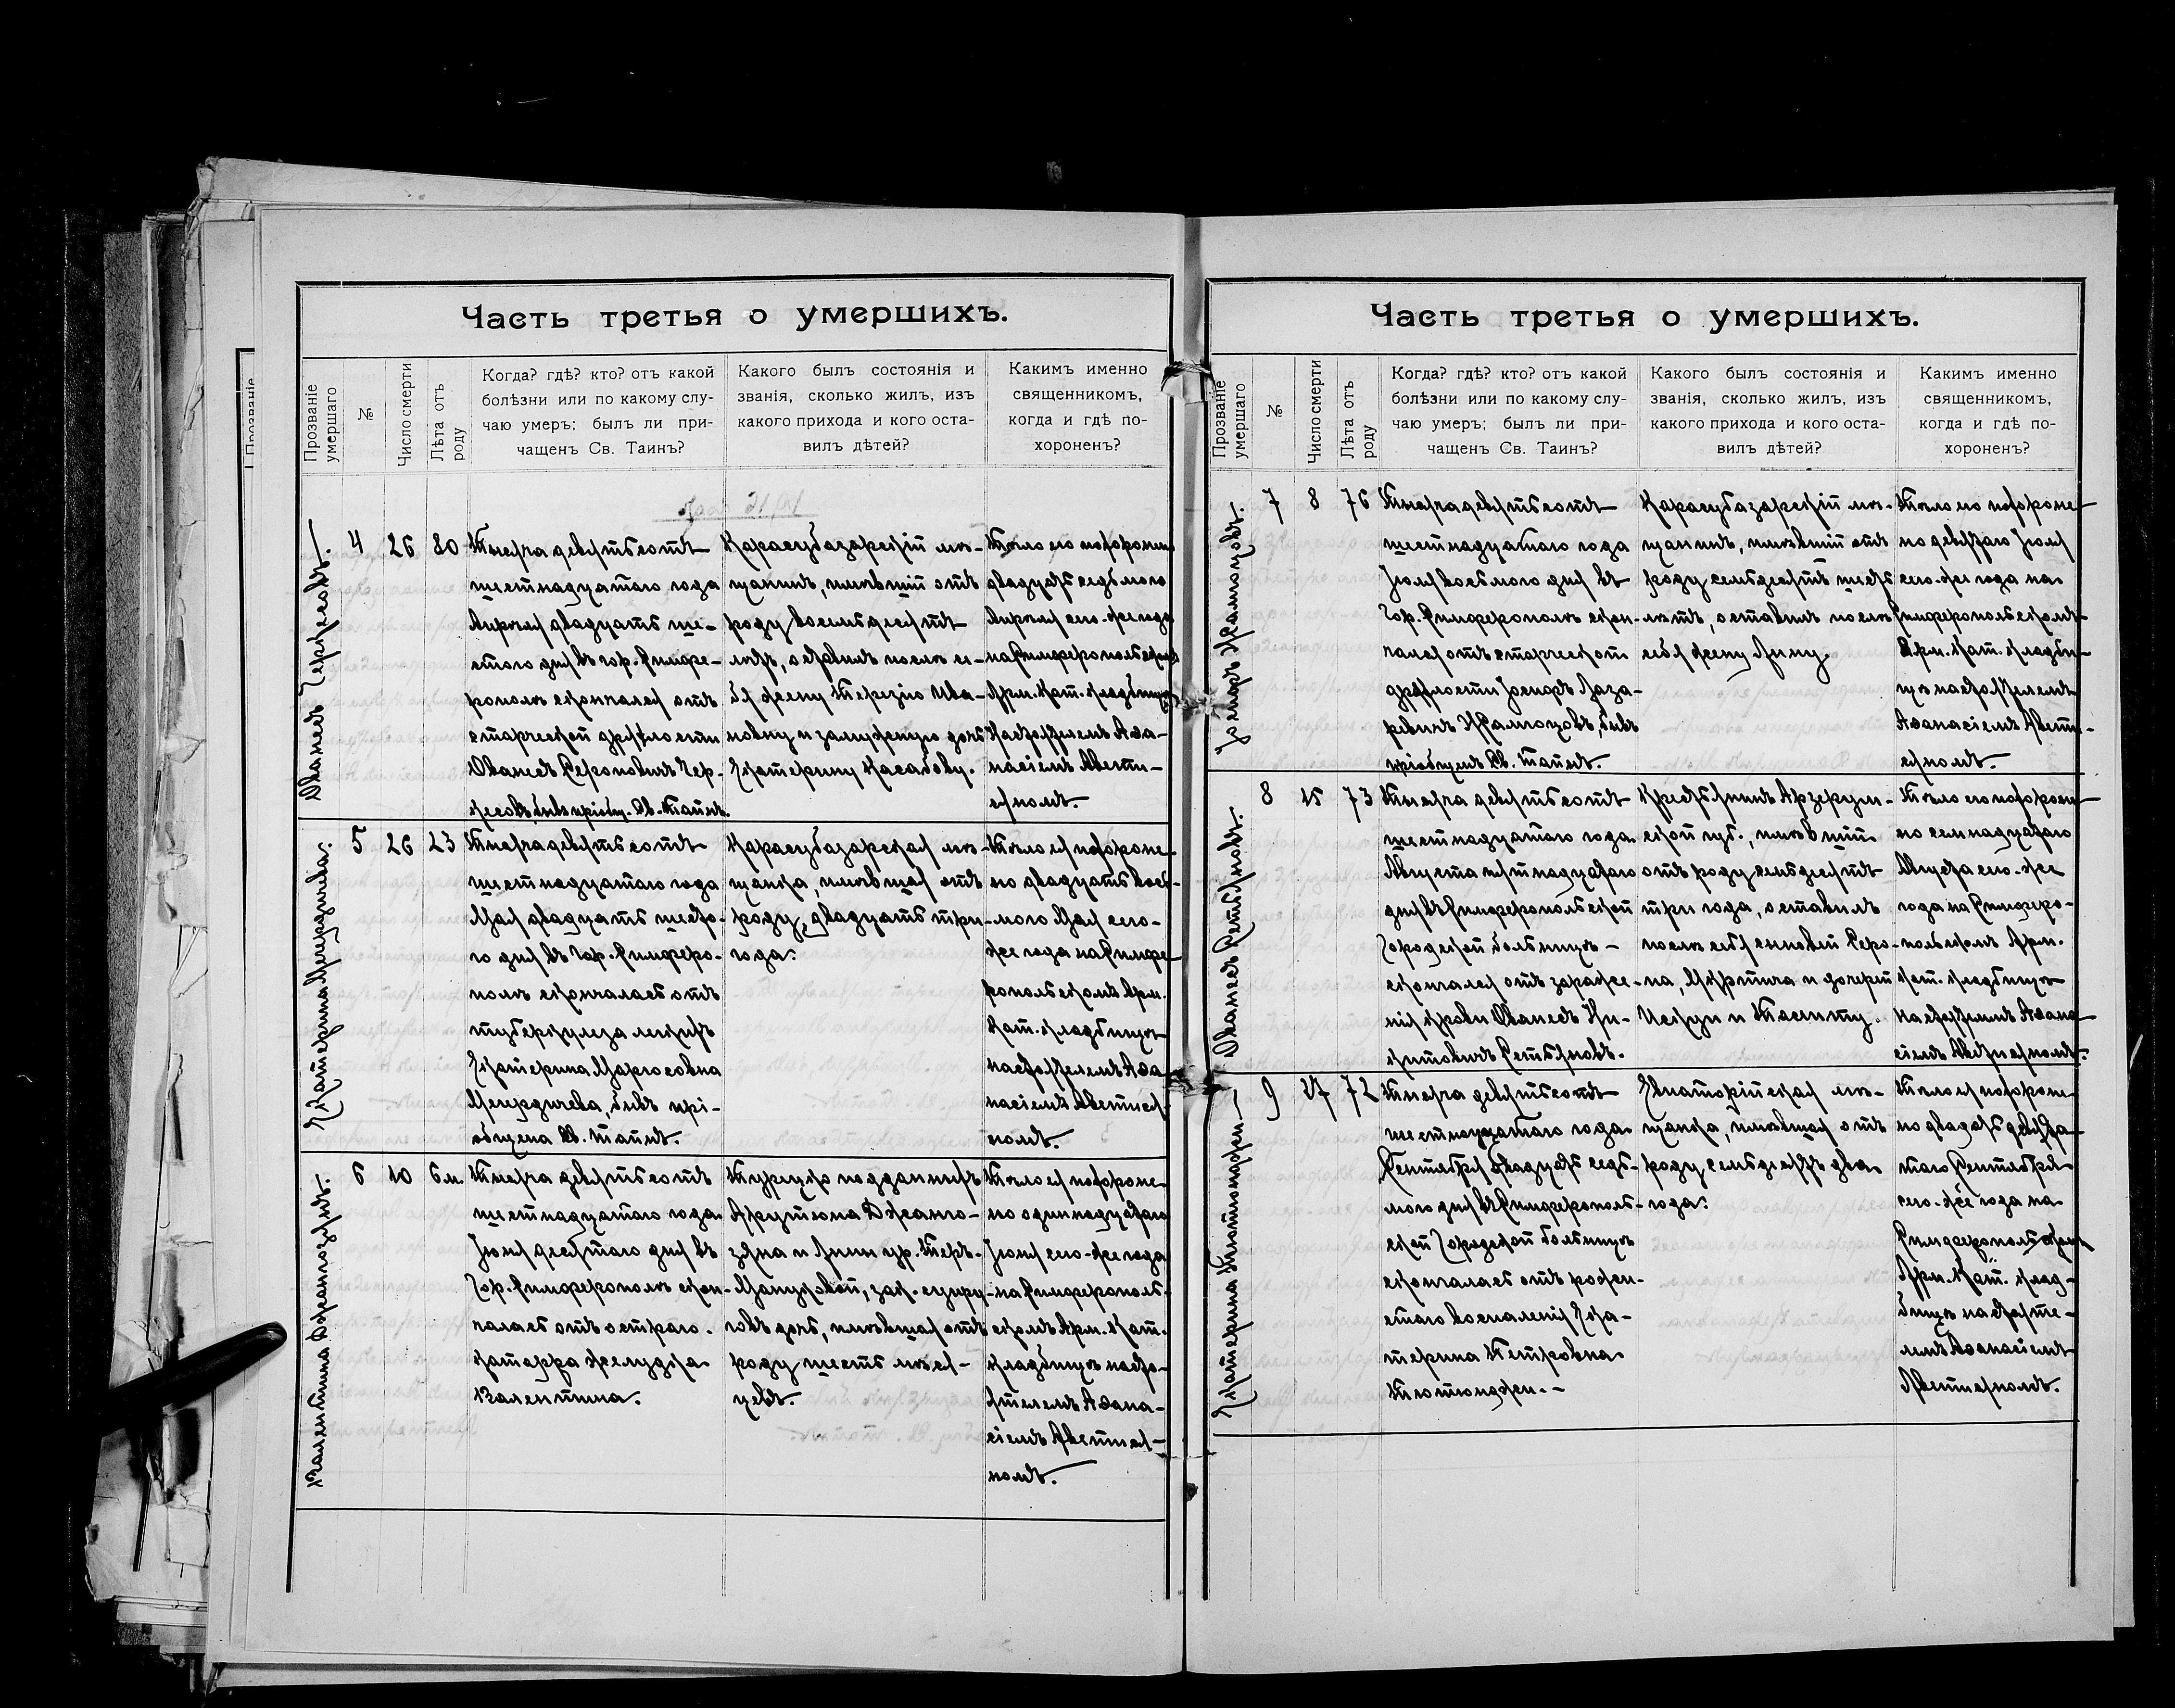 Часть третья о умершихъ.
Прозваніе умершаго
№
Число смерти
Лѣта отъ роду
Когда? гдѣ? кто? отъ какой
болѣзни или по какому слу-
чаю умеръ; былъ ли при-
чащенъ Св. Таинъ?
Какого былъ состоянія и
званія, сколько жилъ, изъ
какого прихода и кого оста-
вилъ дѣтей?
Каким​ъ именно
священникомъ,
когда и гдѣ по-
хороненъ?
Ованесъ Черкесовъ.
4
26
80
Тысяча девятьсотъ
шестнадцатаго года
Апрѣля двадцать ше-
стого дня въ гор. Симфе-
рополѣ скончался отъ
старческой дряхлости
Ованесъ Сероповичъ Чер-
кесовъ, бывъ пріобщ. Св. Таинъ.
Карасубазарскій мѣ-
щанинъ, имѣвшій отъ
роду восемьдесятъ
лѣтъ, оставилъ послѣ се-
бя жену Терезію Ива-
новну и замужнюю дочь
Екатерину Касабову.
Тѣло его похоронено
двадцать седьмого
Апрѣля сего-же года
на Симферопольскомъ
Арм. Кат. кладбищѣ
Настоятелемъ Аѳа-
насіемъ Авети-
сяномъ.
Екатерина Мегердичева.
5
26
23
Тысяча девятьсотъ
шестнадцатаго года
Мая двадцать шесто-
го дня въ гор. Симферо-
полѣ скончалась отъ
туберкулеза легкихъ
Екатерина Маргосовна
Мегердичева, бывъ прі-
общена Св. Таинъ.
Карасубазарская мѣ-
щанка, имѣвшая отъ
роду, двадцать три
года.
Тѣло ея похороне-
но двадцать вось-
мого Мая сего-
же года на Симфе-
ропольскомъ Арм.
Кат. кладбищѣ
настоятелемъ Аѳа-
насіемъ Аветися-
номъ.
Валентина Джангозянъ.
6
10
6 м.
Тысяча девятьсотъ
шестнадцатаго года
Іюня десятаго дня въ
Гор. Симферополѣ скон-
чалась отъ остраго
катарра желудка
Валентина.
Турецко подданныхъ
Арутюна Джанго-
зяна и Анны ур. Теръ-
Мануковой, зак. супру-
говъ дочь, имѣвшая отъ
роду шесть мѣся-
цевъ.
Тѣло ея похороне-
но одиннадцатаго
Іюня сего-же года
на Симферополь-
скомъ Арм. Кат.
кладбищѣ насто-
ятелемъ Аѳана-
сіемъ Аветися-
номъ.
Часть третья о умершихъ.
Прозваніе умершаго
№
Число смерти
Лѣта отъ роду
Когда? гдѣ? кто? отъ какой
болѣзни или по какому слу-
чаю умеръ; былъ ли при-
чащенъ Св. Таинъ?
Какого былъ состоянія и
званія, сколько жилъ, изъ
какого прихода и кого оста-
вилъ дѣтей?
Каким​ъ именно
священникомъ,
когда и гдѣ по-
хороненъ?
7
8
76
Тысяча девятьсотъ
шестнадцатаго года
Іюля восьмого дня въ
Гор. Симферополѣ скон-
чался отъ старческой
дряхлости Іосифъ Лаза-
ревичъ бывъ
пріобщенъ Св. Таинъ.
Карасубазарскій мѣ-
щанинъ, имѣвшій отъ
роду семьдесятъ шесть
лѣтъ, оставилъ послѣ
себя жену Анну.
Тѣло его похороне-
но девятаго Іюля
сего-же года на
Симферопольскомъ
Арм. Кат. кладби-
щѣ настоятелемъ
Аѳанасіемъ Авети-
сяномъ.
Ованесъ Ретьяновъ.
8
15
73
Тысяча девятьсотъ
шестнадцатаго года
Августа пятнадцатаго
дня въ Симферопольской
Городской больницѣ
скончался отъ зараже-
нія крови Ованесъ Ни-
китовичъ Ретьяновъ.
Крестьянинъ Арзерум-
ской губ., имѣвшій
отъ роду семьдесятъ
три года, оставилъ
послѣ себя сыновей Серо-
па, Мкртича и дочерей
Искуи и
Тѣло его похороне-
но семнадцатаго
Августа сего-же
года на Симферо-
польскомъ Арм.
Кат. кладбищѣ
настоятелемъ Аѳана-
сіемъ Аветисяномъ.
Екатерина Тютюнджи
9
27
72
Тысяча девятьсотъ
шестнадцатаго года
Сентября двадцать седь-
мого дня въ Симферополь-
ской Городской больницѣ
скончалась отъ рожи-
стаго воспаленія Ека-
терина Петровна
Тютюнджи.-
Евпаторійская мѣ-
щанка, имѣвшая отъ
роду семьдесятъ два
года.
Тѣло ея похороне-
но двадцать девя-
таго Сентября
сего-же года на
Симферопольскомъ
Арм. Кат. клад-
бищѣ настояте-
лемъ Аѳанасіемъ
Аветисяномъ.